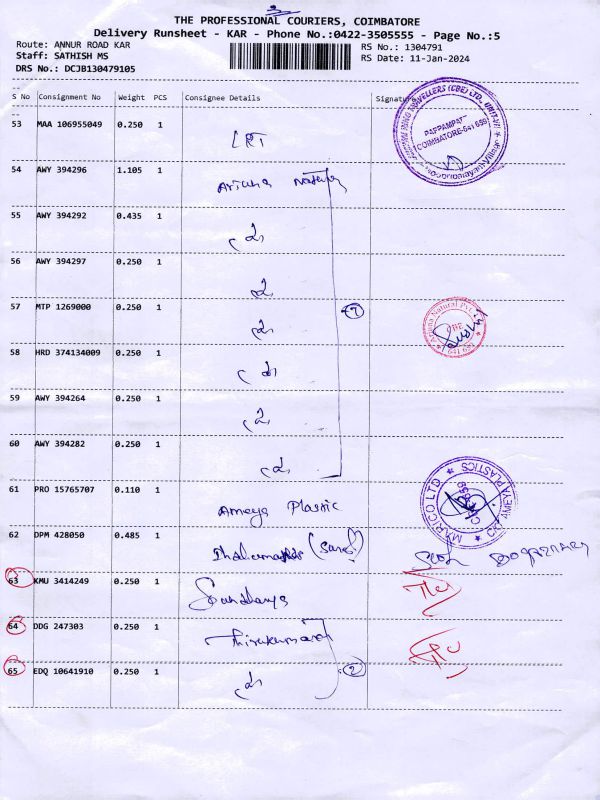 THE PROFESSIONAL COURIERS, COIMBATORE
Delivery Runsheet - KAR - Phone No.:0422-3505555 - Page No.:5
Route: ANNUR ROAD KAR
Staff: SATHISH MS
DRS No.: DCJB130479105
RS No.: 1304791
RS Date: 11-Jan-2024
S No Consignment No Weight PCS Consignee Details Signature
53 MAA 106955049 0.250 1 LRT
54 AWY 394296 1.105 1 Arjuna
55 AWY 394292 0.435 1
56 AWY 394297 0.250 1
57 MTP 1269000 0.250 1
58 HRD 374134009 0.250 1
59 AWY 394264 0.250 1
60 AWY 394282 0.250 1
61 PRO 15765707 0.110 1 Ameya Plastic
62 DPM 428050 0.485 1
63 KMU 3414249 0.250 1 Soundharya
64 DDG 247303 0.250 1 Thirukumaran
65 EDQ 10641910 0.250 1
7
2
PAPPAMPATTI
COIMBATORE-641 659
Arjuna Natural Pvt.
MARICO LTD
AMEYA PLASTICS